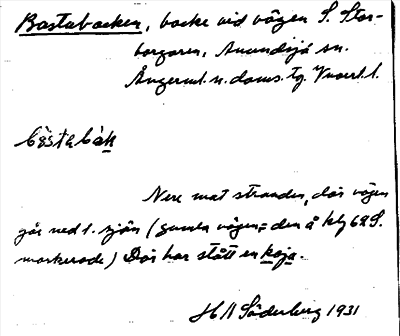 Bastubacken, backe vid vägen S. Stor-
borgaren, Anundsjö sn.
Ångerml. n. doms. tg. Vnorrl. l.
Nere mot stranden, där vägen
går ned t. sjön (gamla vägen = den å kbl 62 S.
markerade) Där har stått en koja.
H N Söderberg 1931